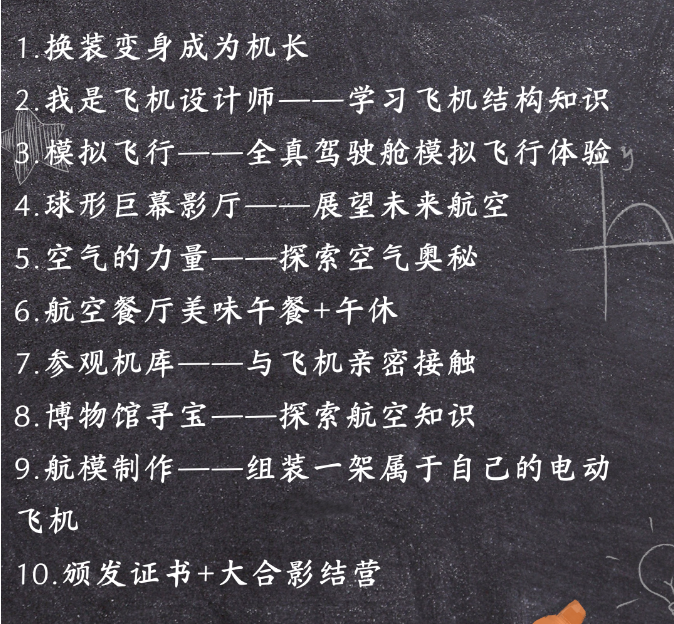 1.换装变身成为机长
2.我是飞机设计师——学习飞机结构知识
3.模拟飞行——全真驾驶舱模拟飞行体验
4.球形巨幕影厅——展望未来航空
5.空气的力量——探索空气奥秘
6.航空餐厅美味午餐+午休
7.参观机库——与飞机亲密接触
8.博物馆寻宝——探索航空知识
9.航模制作——组装一架属于自己的电动
飞机
10.颁发证书+大合影结营
y